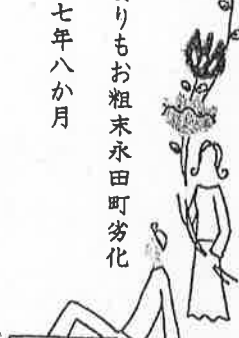 りもお粗末永田町劣化
七年八か月